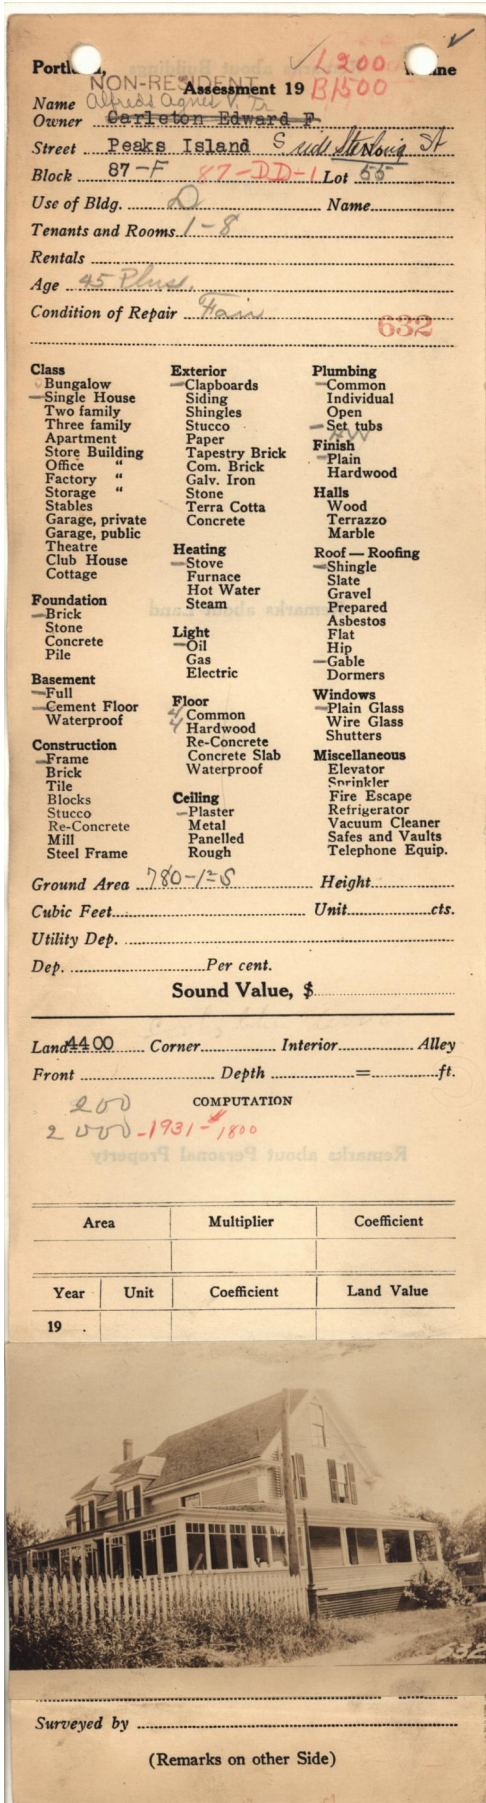 L 200
Portland, Maine
NON-RESIDENT Assessment 19 B1500
Name Alfreds Agnes V. Tr
Owner Carleton Edward F
Street Peaks Island S side Sterling St
Block 87-F 87-DD-1 Lot 55
Use of Bldg. D Name
Tenants and Rooms 1-8
Rentals
Age 45 Plus.
Condition of Repair Fair
632
Class
Bungalow
Single House
Two family
Three family
Apartment
Store Building
Office "
Factory "
Storage "
Stables
Garage, private
Garage, public
Theatre
Club House
Cottage
Foundation
Brick
Stone
Concrete
Pile
Basement
Full
Cement Floor
Waterproof
Construction
Frame
Brick
Tile
Blocks
Stucco
Re-Concrete
Mill
Steel Frame
Exterior
Clapboards
Siding
Shingles
Stucco
Paper
Tapestry Brick
Com. Brick
Galv. Iron
Stone
Terra Cotta
Concrete
Heating
Stove
Furnace
Hot Water
Steam
Light
Oil
Gas
Electric
Floor
4 Common
4 Hardwood
Re-Concrete
Concrete Slab
Waterproof
Ceiling
Plaster
Metal
Panelled
Rough
Plumbing
Common
Individual
Open
Set tubs
Finish
Plain
Hardwood
Halls
Wood
Terrazzo
Marble
Roof — Roofing
Shingle
Slate
Gravel
Prepared
Asbestos
Flat
Hip
Gable
Dormers
Windows
Plain Glass
Wire Glass
Shutters
Miscellaneous
Elevator
Sprinkler
Fire Escape
Refrigerator
Vacuum Cleaner
Safes and Vaults
Telephone Equip.
Ground Area 780-1 2 S Height
Cubic Feet Unit cts.
Utility Dep.
Dep. Per cent.
Sound Value, $
Land 4400 Corner Interior Alley
Front Depth = ft.
200 COMPUTATION
2000 -1931- $1800
Remarks about Personal Property
Area Multiplier Coefficient
Year Unit Coefficient Land Value
19 .
632
Surveyed by
(Remarks on other Side)